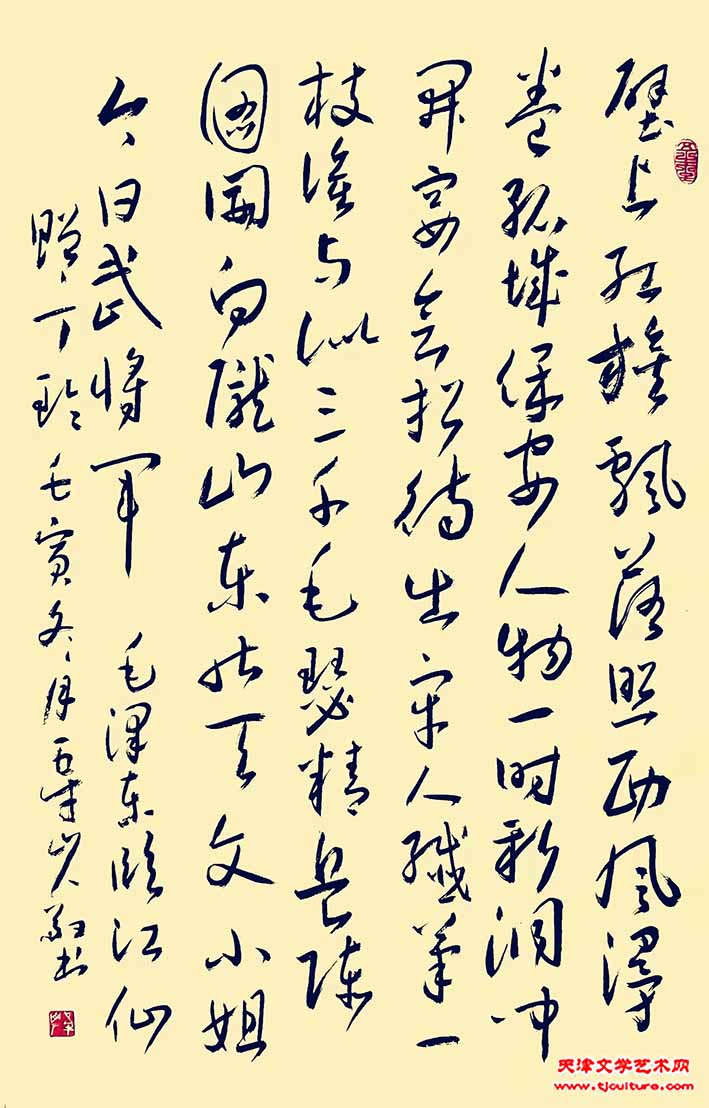 壁上红旗飘落照西风漫
卷孤城保安人物一时新洞中
开宴会招待出牢人纤笔一
枝谁与似三千毛瑟精兵阵
图开向陇山东昨天文小姐
今日武将军 毛泽东临江仙
赠丁玲 壬寅冬月 敬书
天津文学艺术网
www.tjculture.com